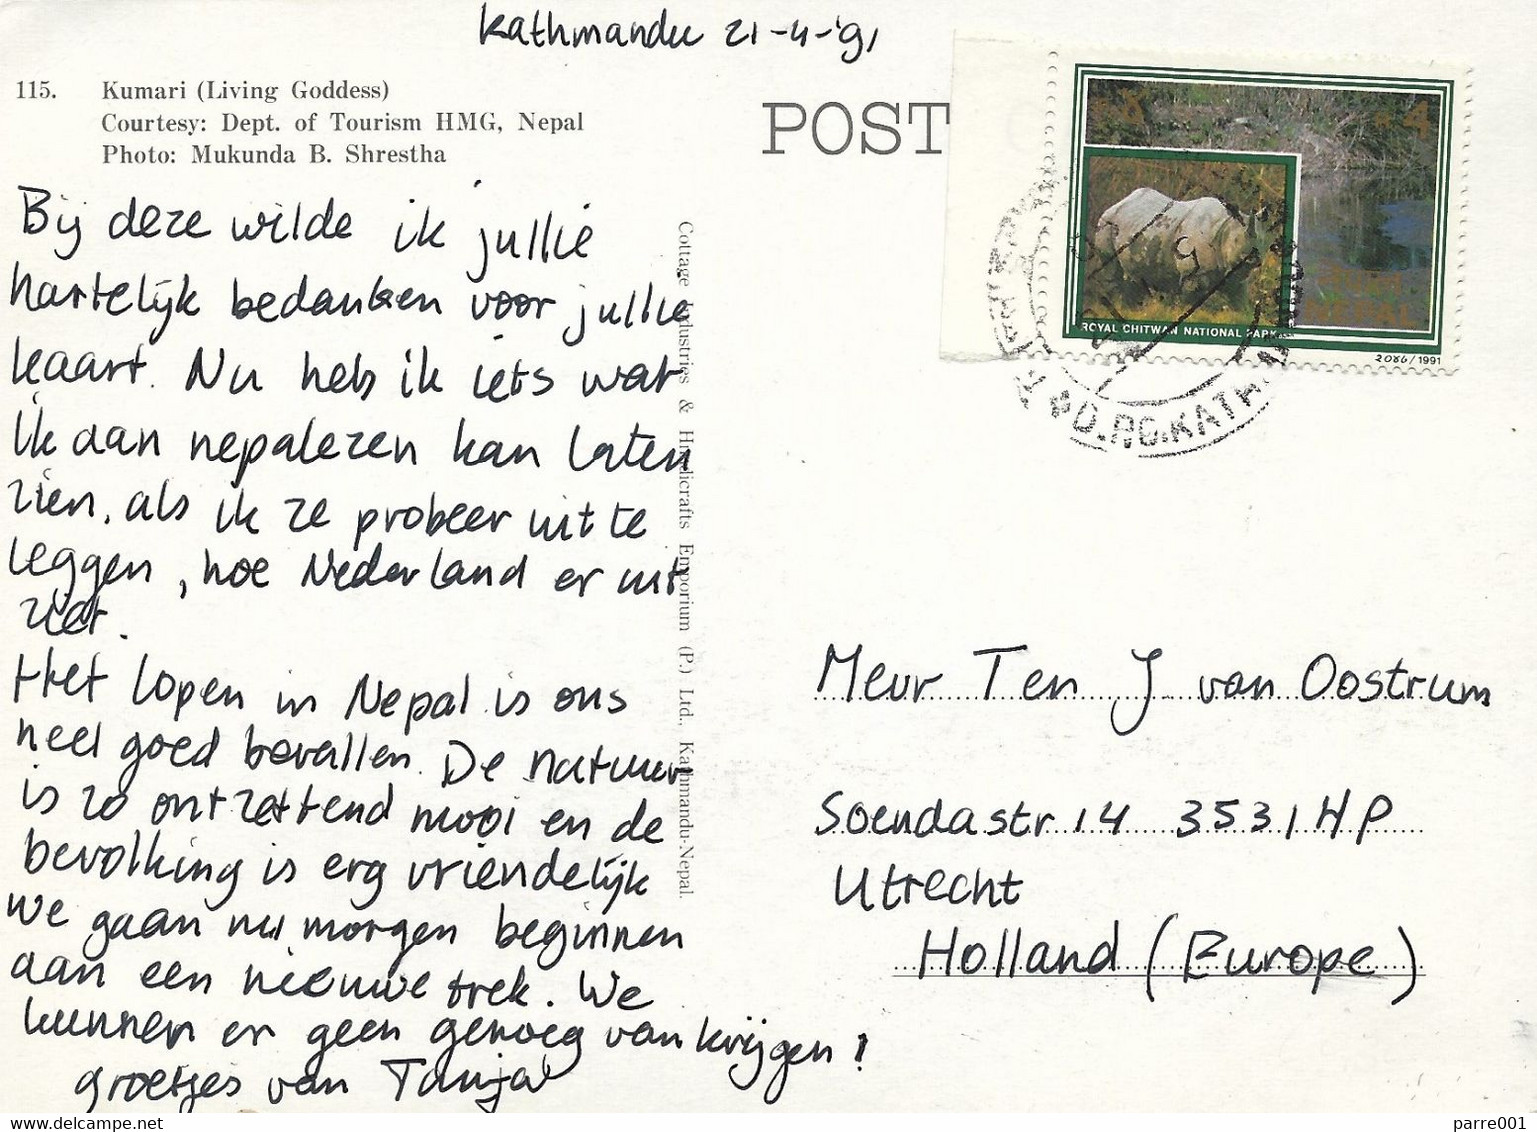 Kathmandu 21-4-'91
115. Kumari (Living Goddess)
Courtesy: Dept. of Tourism HMG, Nepal
Photo: Mukunda B. Shrestha
POST
Bij deze wilde ik jullie
hartelijk bedanken voor jullie
kaart. Nu heb ik iets wat
ik aan nepalezen kan laten
zien, als ik ze probeer uit te
leggen, hoe Nederland er uit
ziet.
Het lopen in Nepal is ons
heel goed bevallen. De natuur
is zo ontzettend mooi en de
bevolking is erg vriendelijk
We gaan nu morgen beginnen
aan een nieuwe trek. We
kunnen er geen genoeg van krijgen!
groetjes van Tanja
Cottage Industries & Handicrafts Emporium (P.) Ltd., Kathmandu-Nepal.
4
NEPAL
ROYAL CHITWAN NATIONAL PARK
2086/1991
D.P.G. KATH
Mevr Ten J van Oostrum
Soendastr 14 3531 HP
Utrecht
Holland (Europe)
delcampe.net
parre001